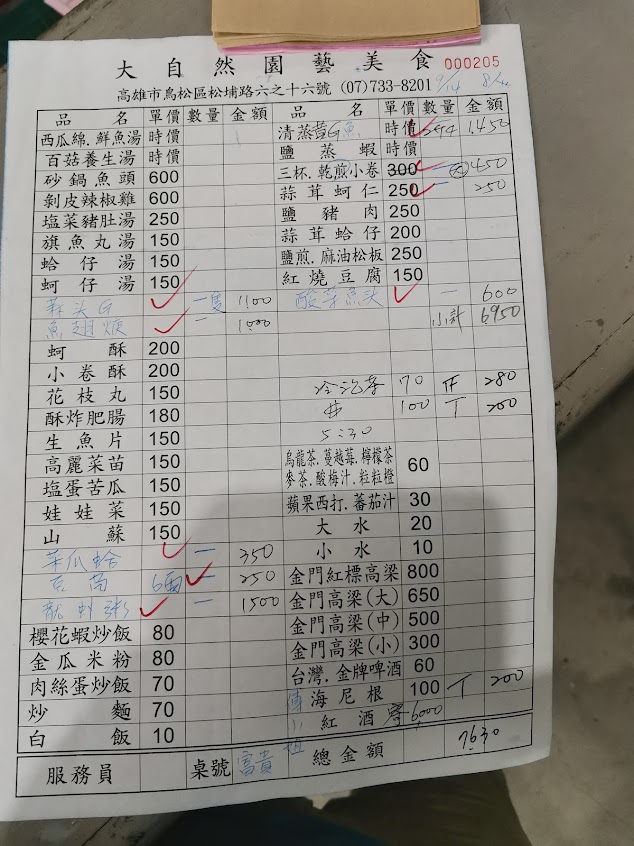 大自然園藝美食 000205
高雄市鳥松區松埔路六之十六號 (07)733-8201 9/14
品名 單價 數量 金額 品名 單價 數量 金額
西瓜綿.鮮魚湯 時價 清蒸 魚 時價 1450
百菇養生湯 時價 鹽蒸蝦 時價
砂鍋魚頭 600 三杯.乾煎小卷 300 一 450
剝皮辣椒雞 600 蒜茸蚵仁 250 一 250
塩菜豬肚湯 250 鹽豬肉 250
旗魚丸湯 150 蒜茸蛤仔 200
蛤仔湯 150 鹽煎.麻油松板 250
蚵仔湯 150 紅燒豆腐 150
蒜头G 一隻 1100 酸菜魚头 一 600
魚翅焿 一 1000 小計 6950
蚵酥 200
小卷酥 200
花枝丸 150 70 280
酥炸肥腸 180 100 200
生魚片 150 5:30
高麗菜苗 150 烏龍茶.蔓越莓.檸檬茶
塩蛋苦瓜 150 麥茶.酸梅汁.粒粒橙 60
娃娃菜 150 蘋果西打.蕃茄汁 30
山蘇 150 大水 20
菜瓜蛤 一 350 小水 10
一 250 金門紅標高梁 800
龍虾粥 一 1500 金門高梁(大) 650
櫻花蝦炒飯 80 金門高梁(中) 500
金瓜米粉 80 金門高梁(小) 300
肉絲蛋炒飯 70 台灣.金牌啤酒 60
炒麵 70 海尼根 100 200
白飯 10 紅酒 6000
服務員 桌號 富貴 總金額 7630